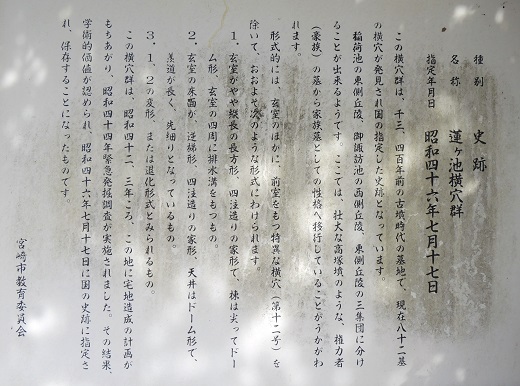 種別 史跡
名称 蓮ヶ池横穴群
指定年月日 昭和四十六年七月十七日
この横穴群は、千三、四百年前の古墳時代の墓地で、現在八十二基
の横穴が発見され国の指定した史跡となっています。
稲荷池の東側丘陵、御諏訪池の西側丘陵、東側丘陵の三集団に分け
ることが出来るようです。ここでは、壮大な高塚墳のような、権力者
(豪族)の墓から家族墓としての性格へ移行していることがうかがわ
れます。
形式的には、玄室のほかに、前室をもつ特異な横穴(第十二号)を
除いて、おおよそ次のような形式にわけられます。
1.玄室がやや縦長の長方形、四注造りの家形で、棟は尖ってドー
ム形、玄室の四周に排水溝をもつもの。
2.玄室の床面が、逆梯形、四注造りの家形、天井はドーム形で、
羨道が長く、先細りとなっているもの。
3.1、2の変形、または退化形式とみられるもの。
この横穴群は、昭和四十二、三年ころ、この地に宅地造成の計画が
もちあがり、昭和四十四年緊急発掘調査が実施されました。その結果、
学術的価値が認められ、昭和四十六年七月十七日に国の史跡に指定さ
れ、保存することになったものです。
宮崎市教育委員会